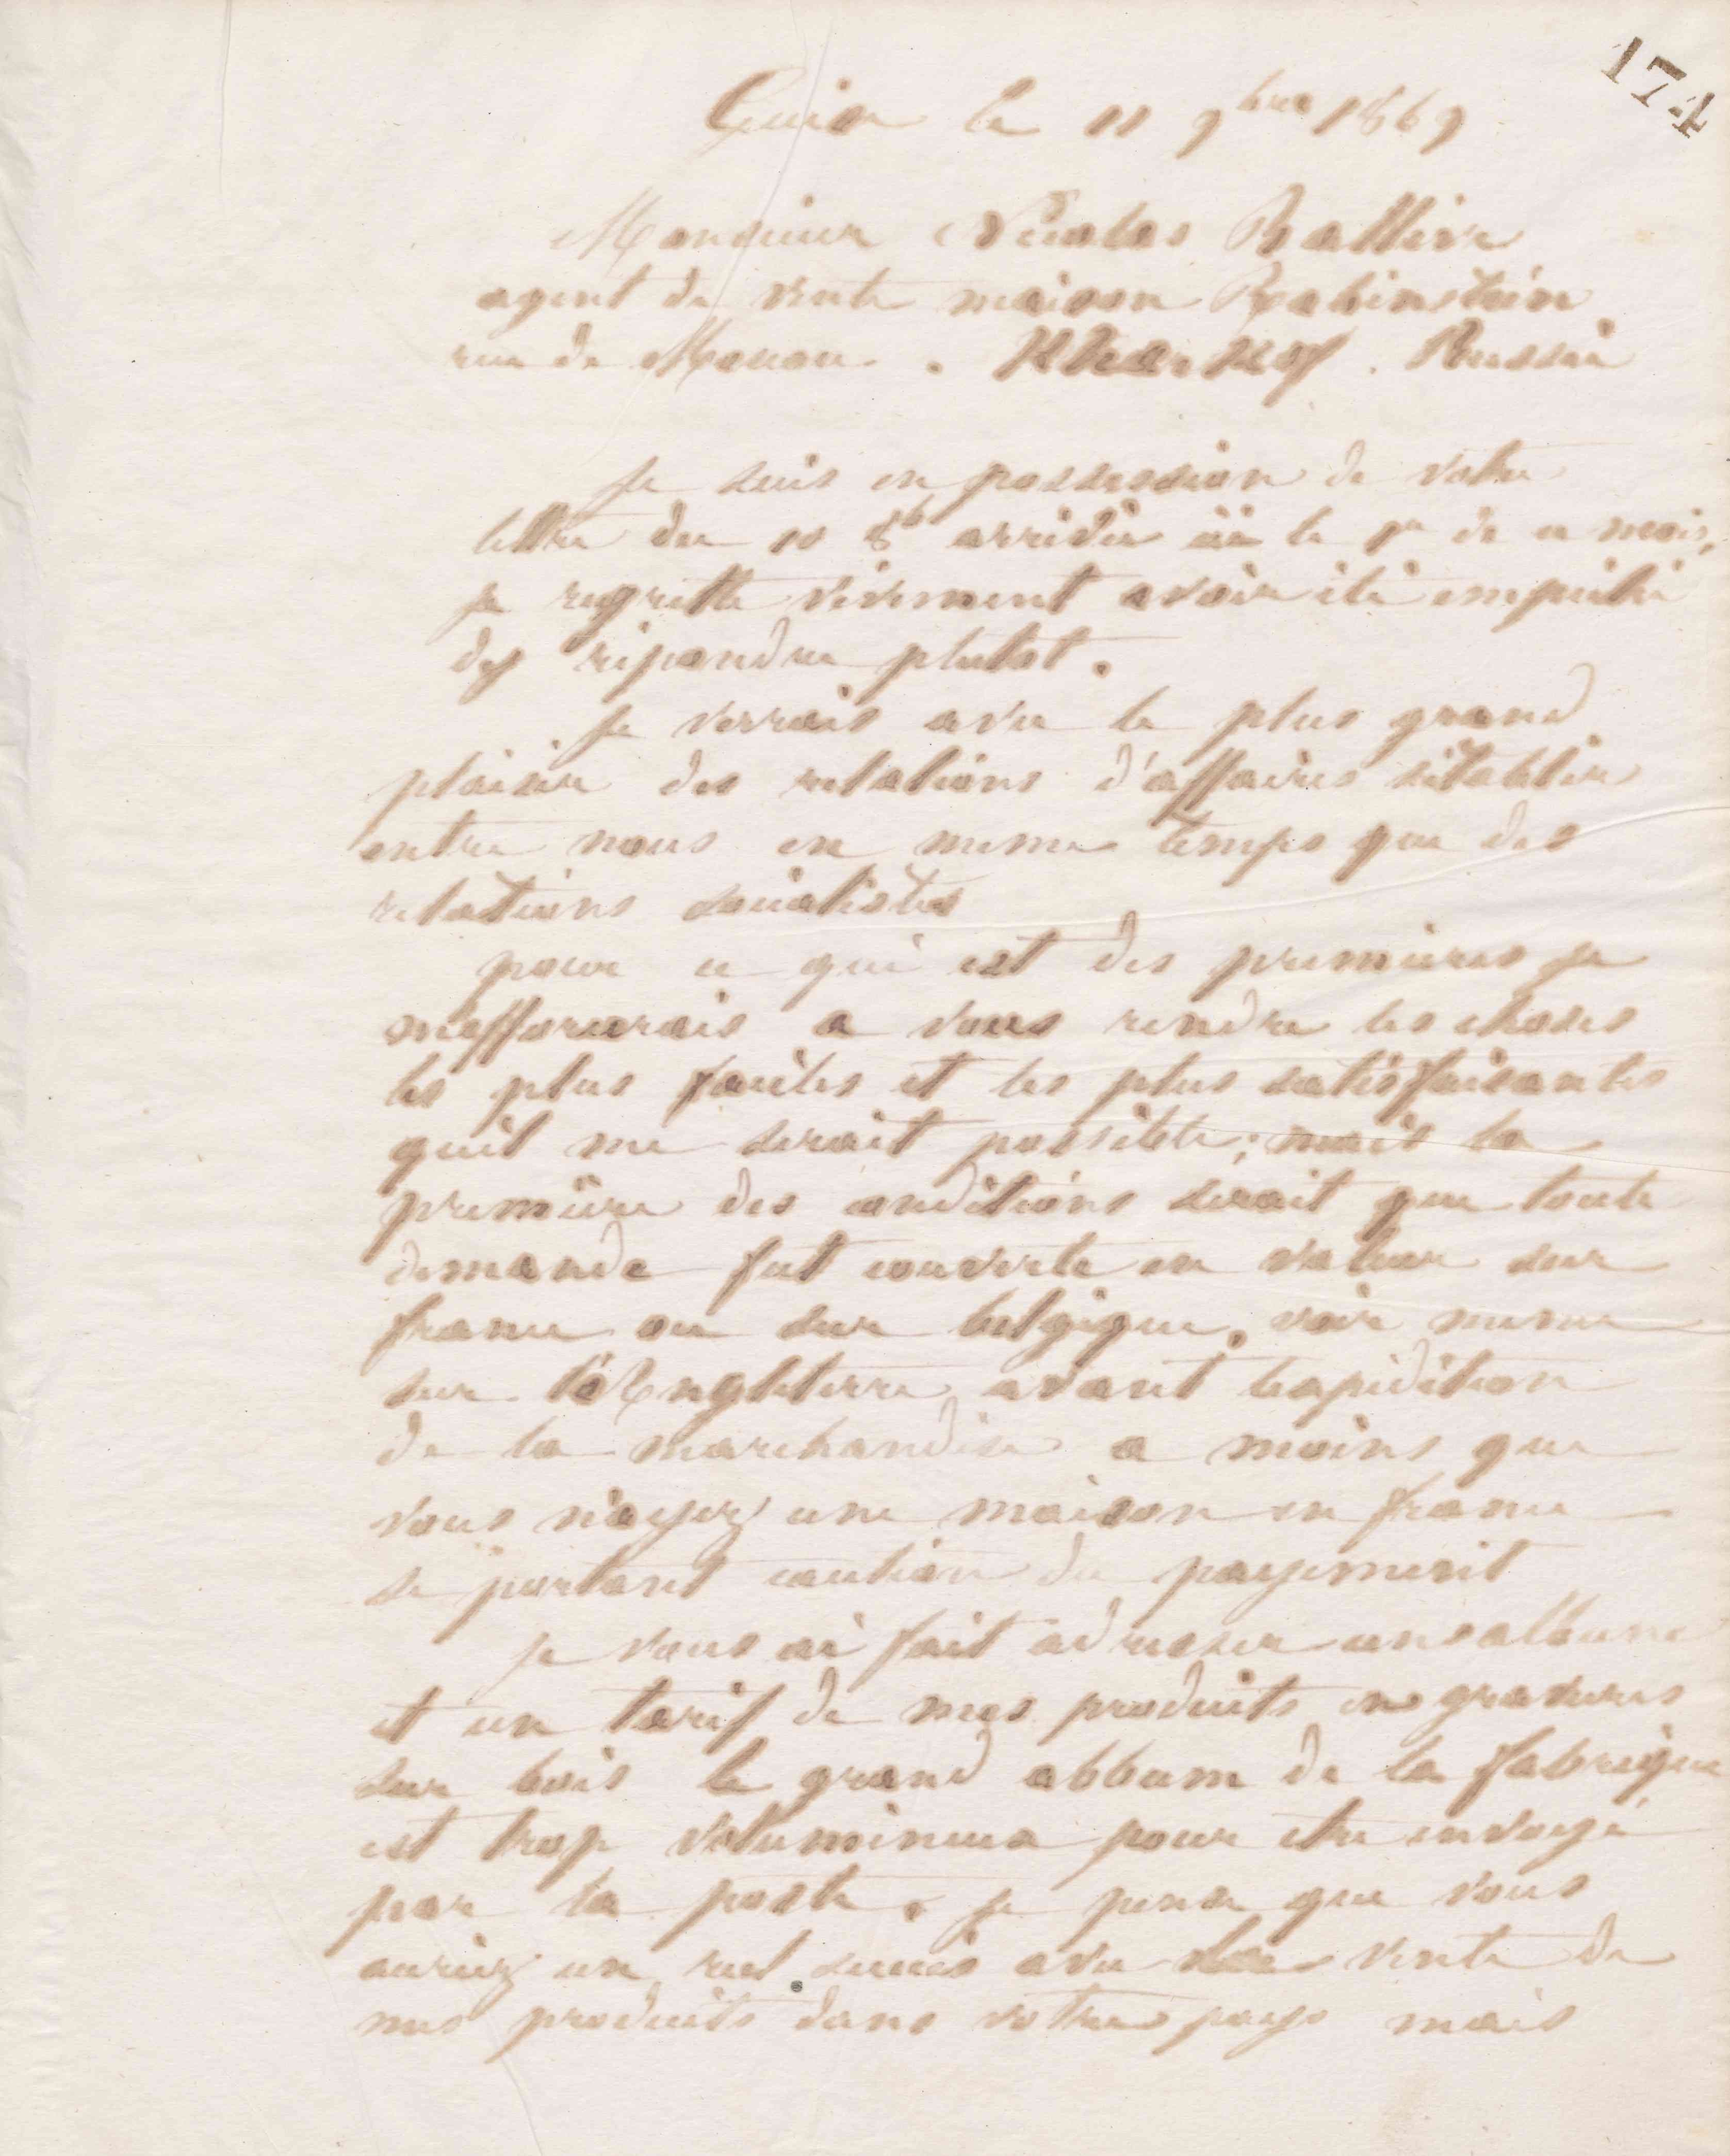 174
Guise le 11 9bre 1869
Monsieur Nicolas Ballin
agent de vente maison Rabinstein
rue de Moscou. Kharkoff. Russie
Je suis en possession de votre
lettre du 10 8b arrivée ici le 1er de ce mois,
je regrette vivement avoir été empeché
d'y répondre plutot.
Je verrais avec le plus grand
plaisir des relations d'affaires s'établir
entre nous en meme temps que des
relations socialistes
pour ce qui est des premieres je
m'efforcerais a vous rendre les choses
les plus faciles et les plus satisfaisantes
quil me serait possible; mais la
premiere des conditions serait que toute
demande fut couverte en valeur sur
france ou sur belgique, voir meme
sur l'Engleterre avant l'expédition
de la marchandise a moins que
vous n'ayez une maison en france
se portant caution du payement
je vous ai fait adresser un album
et un tarif de mes produits en gravures
sur bois le grand abbum de la fabrique
est trop volumineux pour etre envoyé
par la poste. je pense que vous
auriez un reel succès avec la vente de
nos produits dans votre pays mais